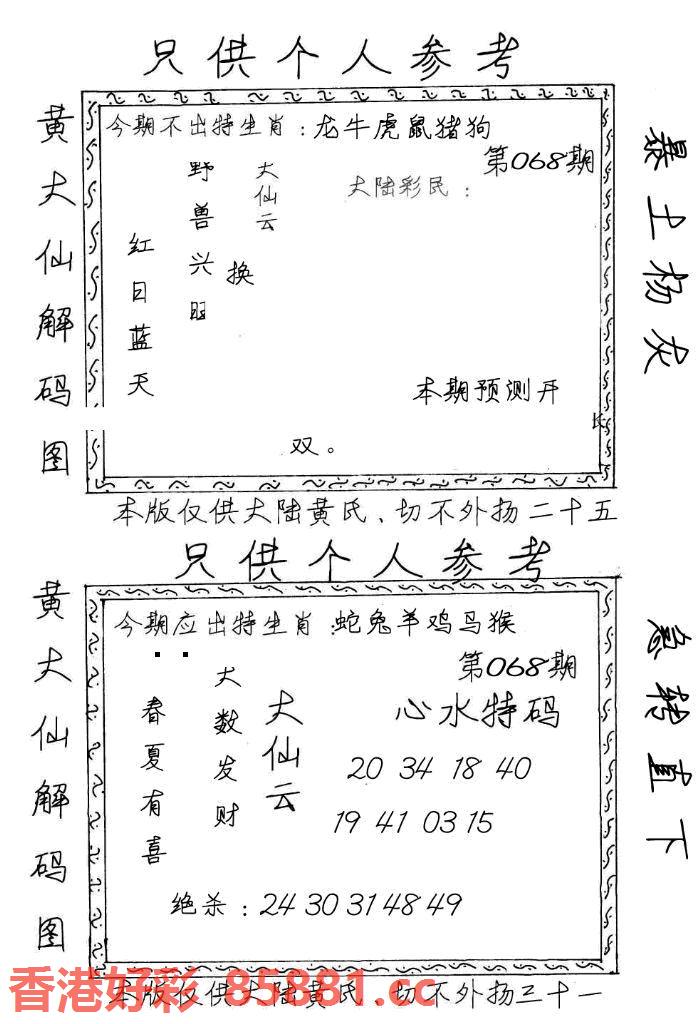 只供个人参考
黄大仙解码图
今期不出特生肖：龙牛虎鼠猪狗
第068期
大陆彩民：
大仙云
野兽兴旺
换
红日蓝天
本期预测开
双。
暴土杨灰
本版仅供大陆黄氏、切不外扬二十五
只供个人参考
黄大仙解码图
今期应出特生肖：蛇兔羊鸡马猴
第068期
心水特码
大仙云
大数发财
春夏有喜
20 34 18 40
19 41 03 15
绝杀：24 30 31 48 49
急转直下
本版仅供大陆黄氏、切不外扬三十一
香港好彩 85881.cc